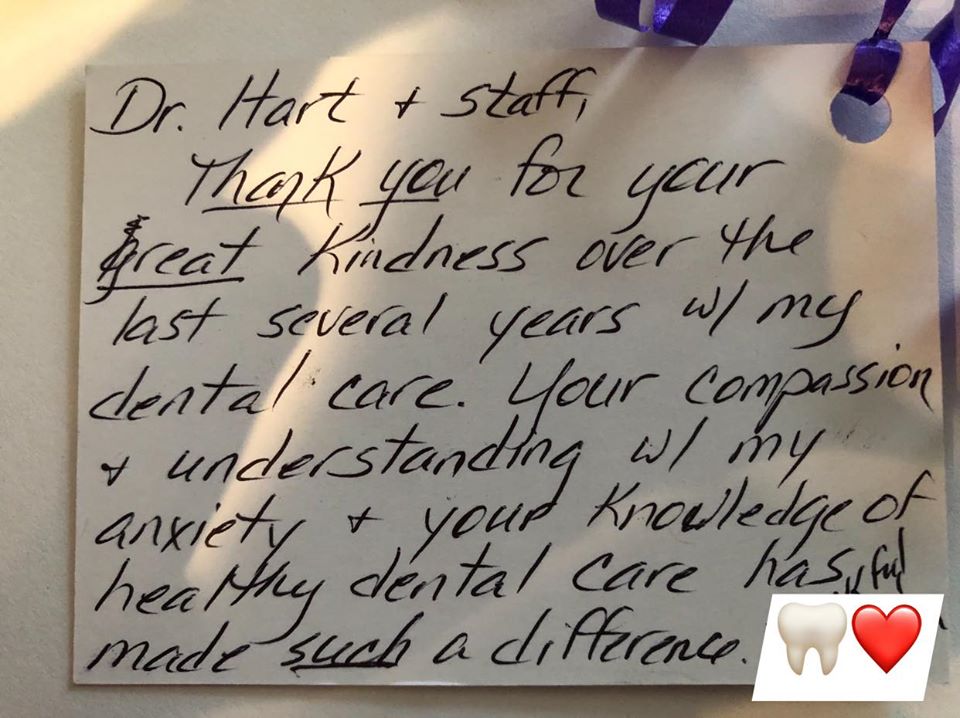 Dr. Hart + staff,
Thank you for your
great kindness over the
last several years w/ my
dental care. Your compassion
+ understanding w/ my
anxiety + your knowledge of
healthy dental care has
made such a difference.